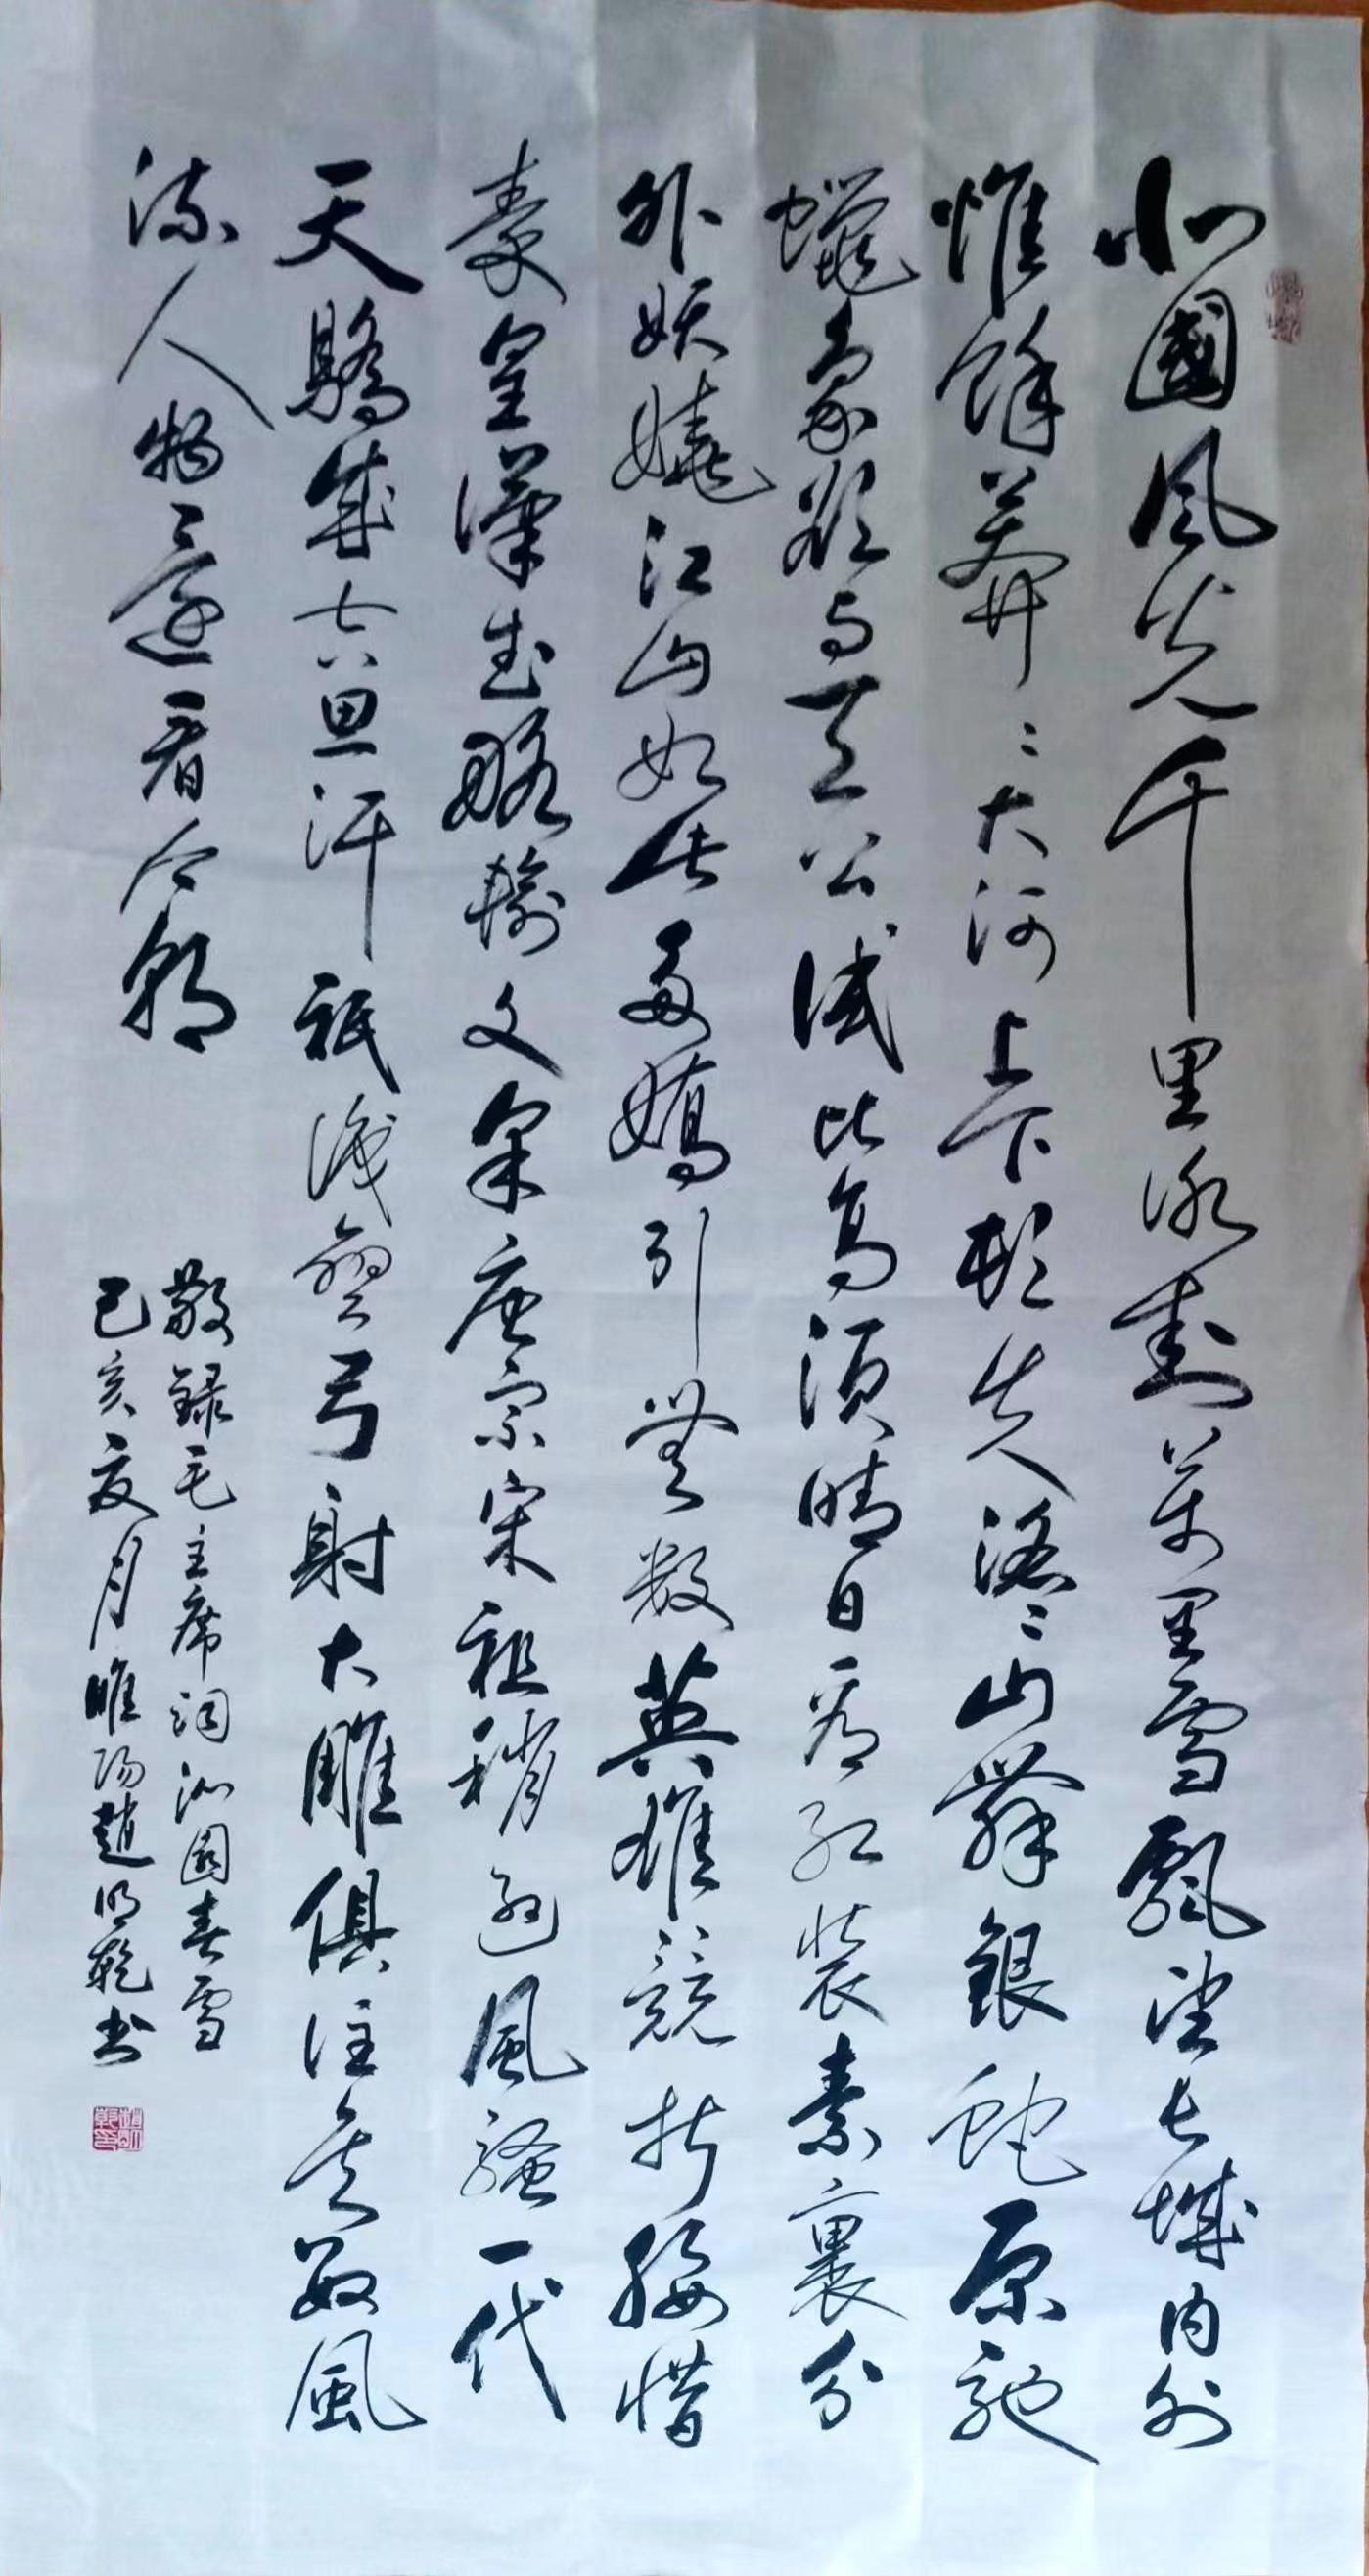 北國风光千里冰封萬里雪飄望長城内外
惟餘莽〻大河上下頓失滔〻山舞銀蛇原馳
蠟象欲与天公試比高須晴日看红装素裹分
外妖嬈江山如此多嬌引無數英雄競折腰惜
秦皇漢武略輸文采唐宗宋祖稍遜風騷一代
天驕成吉思汗祇識彎弓射大雕俱往矣數風
流人物還看今朝
敬録毛主席詞沁園春雪
己亥夏月睢陽趙明乾书
趙明乾印